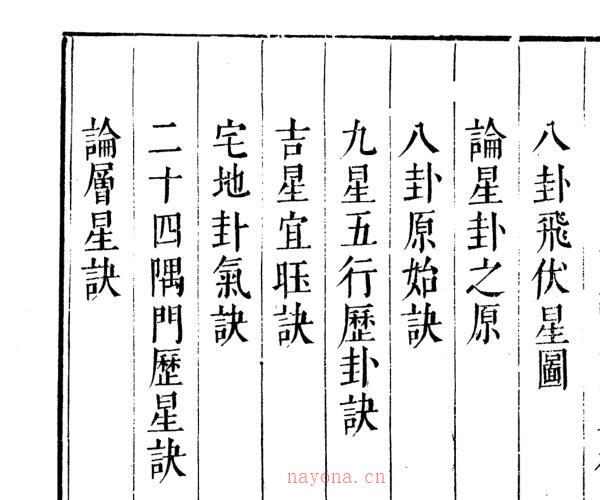 八卦飛伏星圖
論星卦之原
八卦原始訣
九星五行歷卦訣
吉星宜旺訣
宅地卦氣訣
二十四隅門歷星訣
論層星訣
nayona.cn